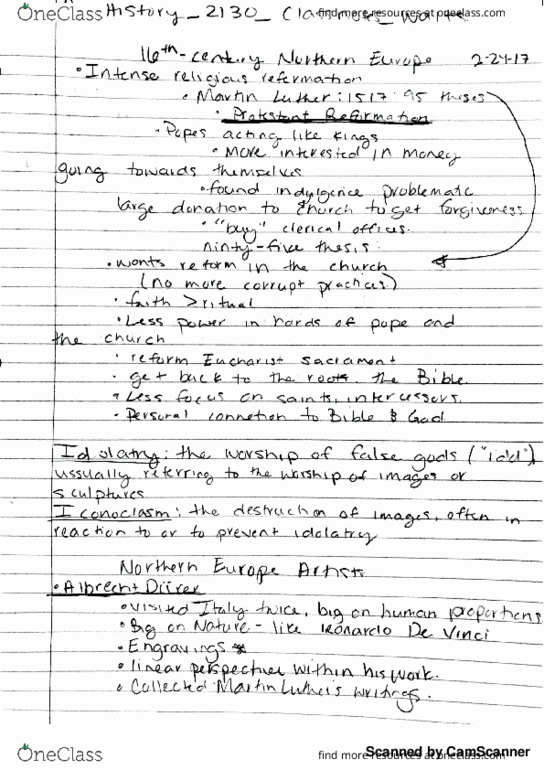 OneClass
find more resources at oneclass.com
History_2130_
16th-century Northern Europe 2-24-17
• Intense religious reformation
• Martin Luther: 1517: 95 theses
• Protestant Reformation
• Popes acting like kings
• More interested in money
going towards themselves
• found indulgence problematic
large donation to church to get forgiveness
• "buy" clerical offices.
ninty-five thesis:
• wants reform in the church
(no more corrupt practices)
• faith > ritual
• Less power in hands of pope and
the church
• reform Eucharist sacrament
• get back to the roots the Bible.
• Less focus on saints, intercessors.
• Personal connetion to Bible & God
Idolatry: the worship of false gods ("idol")
ussually referring to the worship of images or
sculptures
Iconoclasm: the destruction of images, often in
reaction to or to prevent idolatry
Northern Europe Artists
• Albrecht Dürer
• visited Italy twice, big on human proportions
• Big on Nature - like Leonardo De Vinci
• Engravings *
• linear perspective within his work.
• Collected Martin Luther's writings.
OneClass
find more resources at oneclass.com
Scanned by CamScanner